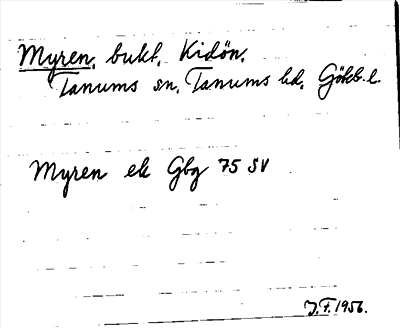 Myren, bukt, Kidön,
Tanums sn, Tanums hd, Götb. l.
Myren ek Gbg 75 SV
J.F. 1956.